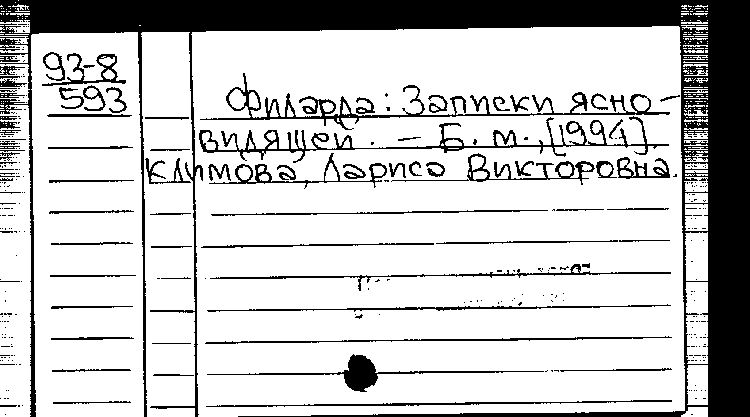 93-8
593
Филарда: Записки ясно-
видящей. - Б. м., [1994].
Климова, Лариса Викторовна.